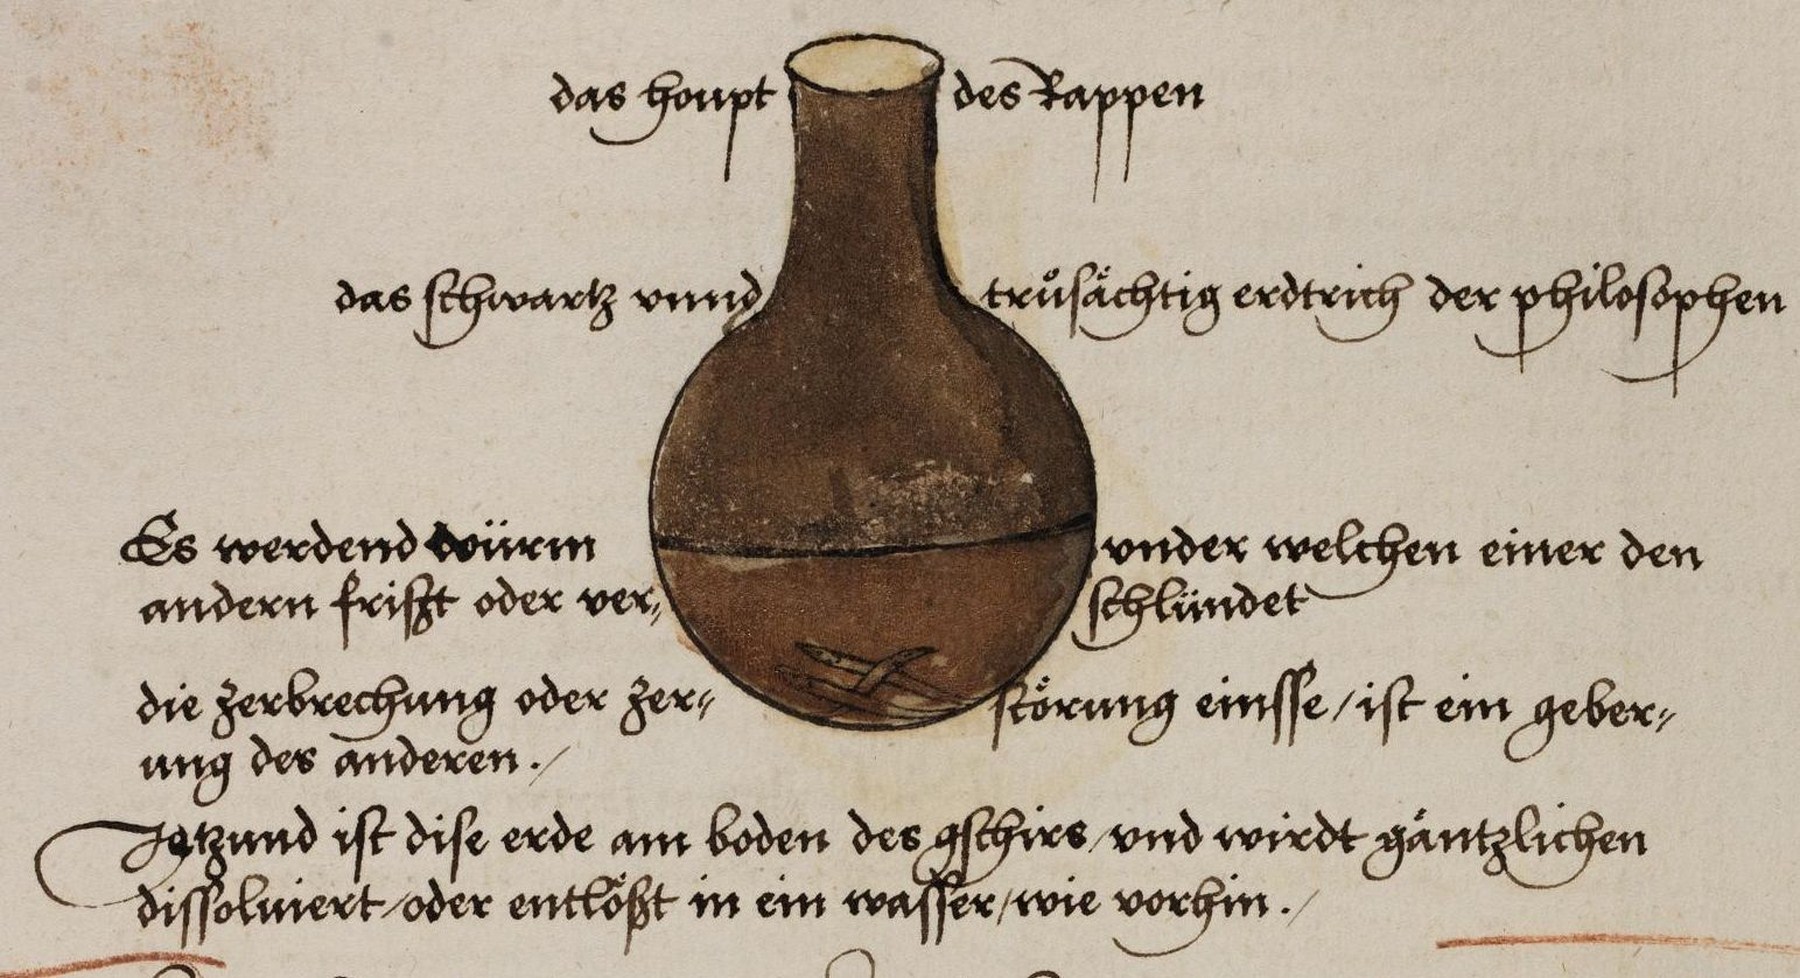 das houpt des Rappen
das schwartz vnnd trůsächtig erdtrich der philosophen
Es werdend würm vnder welchen einer den
andern frißt oder ver⸗ schlündet
die zerbrechung oder zer⸗ störung einsse / ist ein geber⸗
ung des anderen ./
Jetzund ist dise erde am boden des gschirs / vnd wirdt gäntzlichen
dissoluiert / oder entlößt in ein wasser / wie vorhin ./